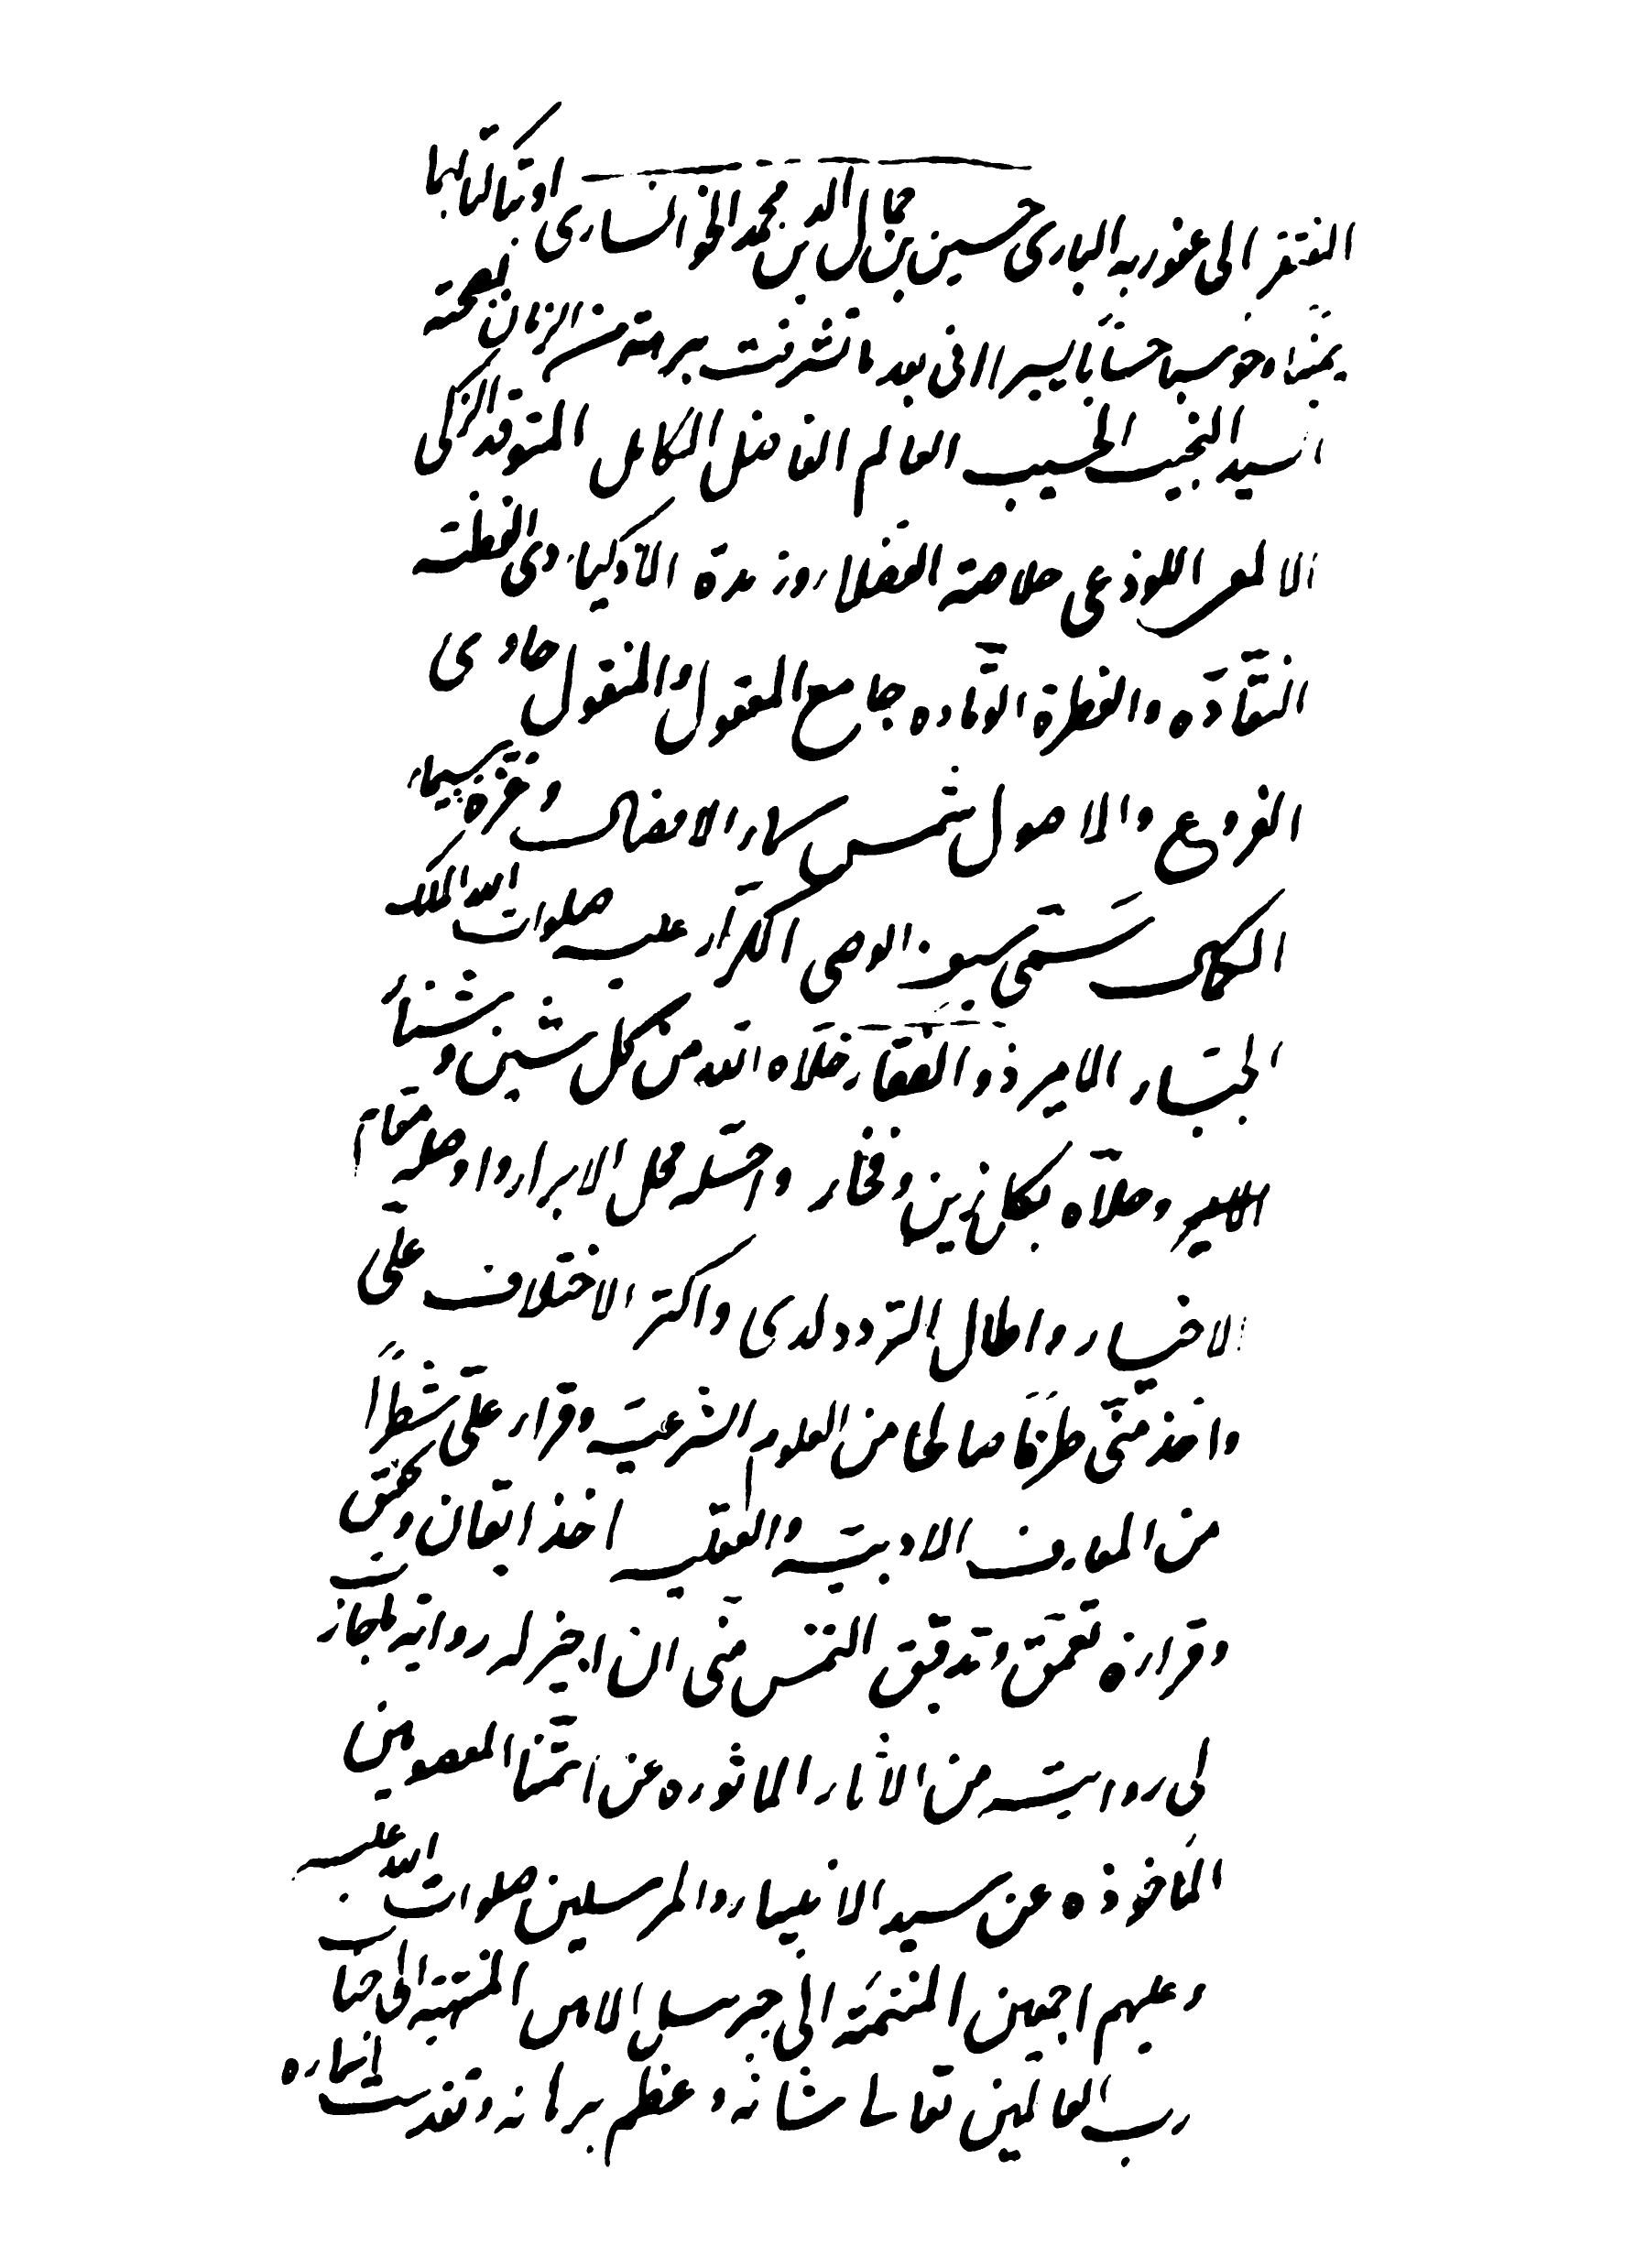 المفتقر الى عفو ربه البارى حسين بن جمال الدين محمد الخوانسارى اوتيا كتابهما
بيمناه وحوسبا حسابا يسيرا انى بعد ما تشرفت برهة من الزمان بصحبة
السيد النجيب الحسيب العالم الفاضل الكامل المتوقد الزكى
الالمعى اللوذعى خلاصة الفضلاء وزبدة الاذكياء ذى الفطنة
النقّادة والفطرة الوقّاده جامع المعقول والمنقول حاوى
الفروع والاصول شمس سماء الافضال وغرّة سيماء
الكمال سمّى سيف الوصى الكرّار عليه صلوات الله الملك
الجبّار الامير ذو الفقار خلّاه الله من كل شين وشنار
وحلّاه بكل زين وفخار واحلّه محل الابرار واوصله مقام
الاخيار واطال التردد لدى واكثر الاختلاف علىّ
واخذ منّى طرفا صالحا من العلوم الشرعيّة وقرأ علىّ شطراً
من المعارف الادبيّة والعقليه اخذ ايقان وتحقيق
وقراءة تعمّق وتدقيق التمس منّى ان اجيز له رواية ما جاز
لى روايته من الآثار الماثوره عن ائمّتنا المعصومين
المأخوذه عن سيد الانبياء والمرسلين صلوات الله عليه
وعليهم اجمعين المنتمية الى جبرئيل الامين المنتهية الى جناب
رب العالمين تعالى شانه وعظم برهانه وتقدست اسماءه